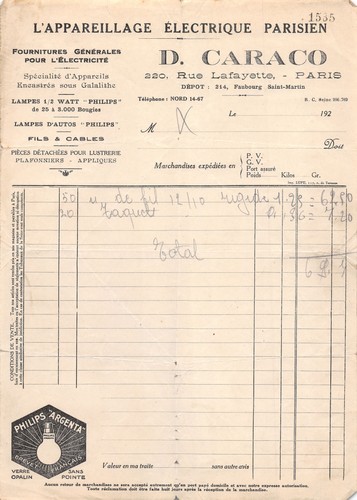 1535
L'APPAREILLAGE ÉLECTRIQUE PARISIEN
FOURNITURES GÉNÉRALES
POUR L'ÉLECTRICITÉ
Spécialité d'Appareils
Encastrés sous Galalithe
LAMPES 1/2 WATT "PHILIPS"
de 25 à 3.000 Bougies
LAMPES D'AUTOS "PHILIPS"
FILS & CABLES
PIÈCES DÉTACHÉES POUR LUSTRERIE
PLAFONNIERS - APPLIQUES
D. CARACO
220, Rue Lafayette, - PARIS
DÉPOT : 214, Faubourg Saint-Martin
Téléphone : NORD 14-67
R. C. Seine
Le 192
M X
Doit
Marchandises expédiées en
P. V.
G. V.
Port assuré
Poids Kilos Gr.
50 m de fil 12/10 rigide 1.28 = 
20 Taquet = 7.20
Total
CONDITIONS DE VENTE.
PHILIPS "ARGENTA"
BREVET FRANÇAIS
VERRE OPALIN
SANS POINTE
Valeur en ma traite sans autre avis
Aucun retour de marchandises ne sera accepté autrement qu'en port payé domicile et avec notre expresse autorisation.
Toute réclamation doit être faite huit jours après la réception de la marchandise.